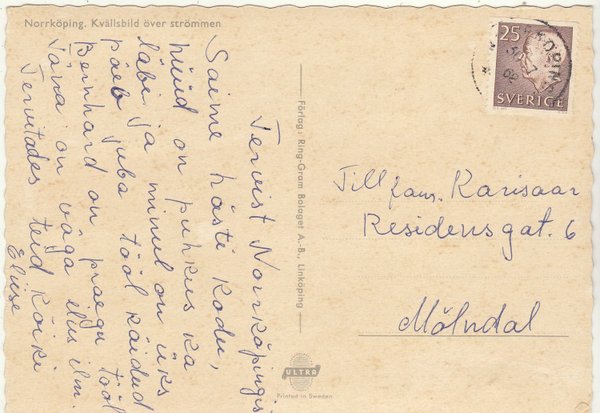 Norrköping. Kvällsbild över strömmen
Tervist Norrköpingist
Saime hästi kodu,
nüüd on puhkus ka
läbi ja minul on üks
päev juba tööl käidud
Beinhard on praegu tööl
Täna on väga ilus ilm.
Tervitades teid kõiki
Eliise
Förlag: Ring-Gram Bolaget A.-B., Linköping
25
SVERIGE
Till fam. Karisaar
Residensgat. 6
Mölndal
ULTRA
Printed in Sweden